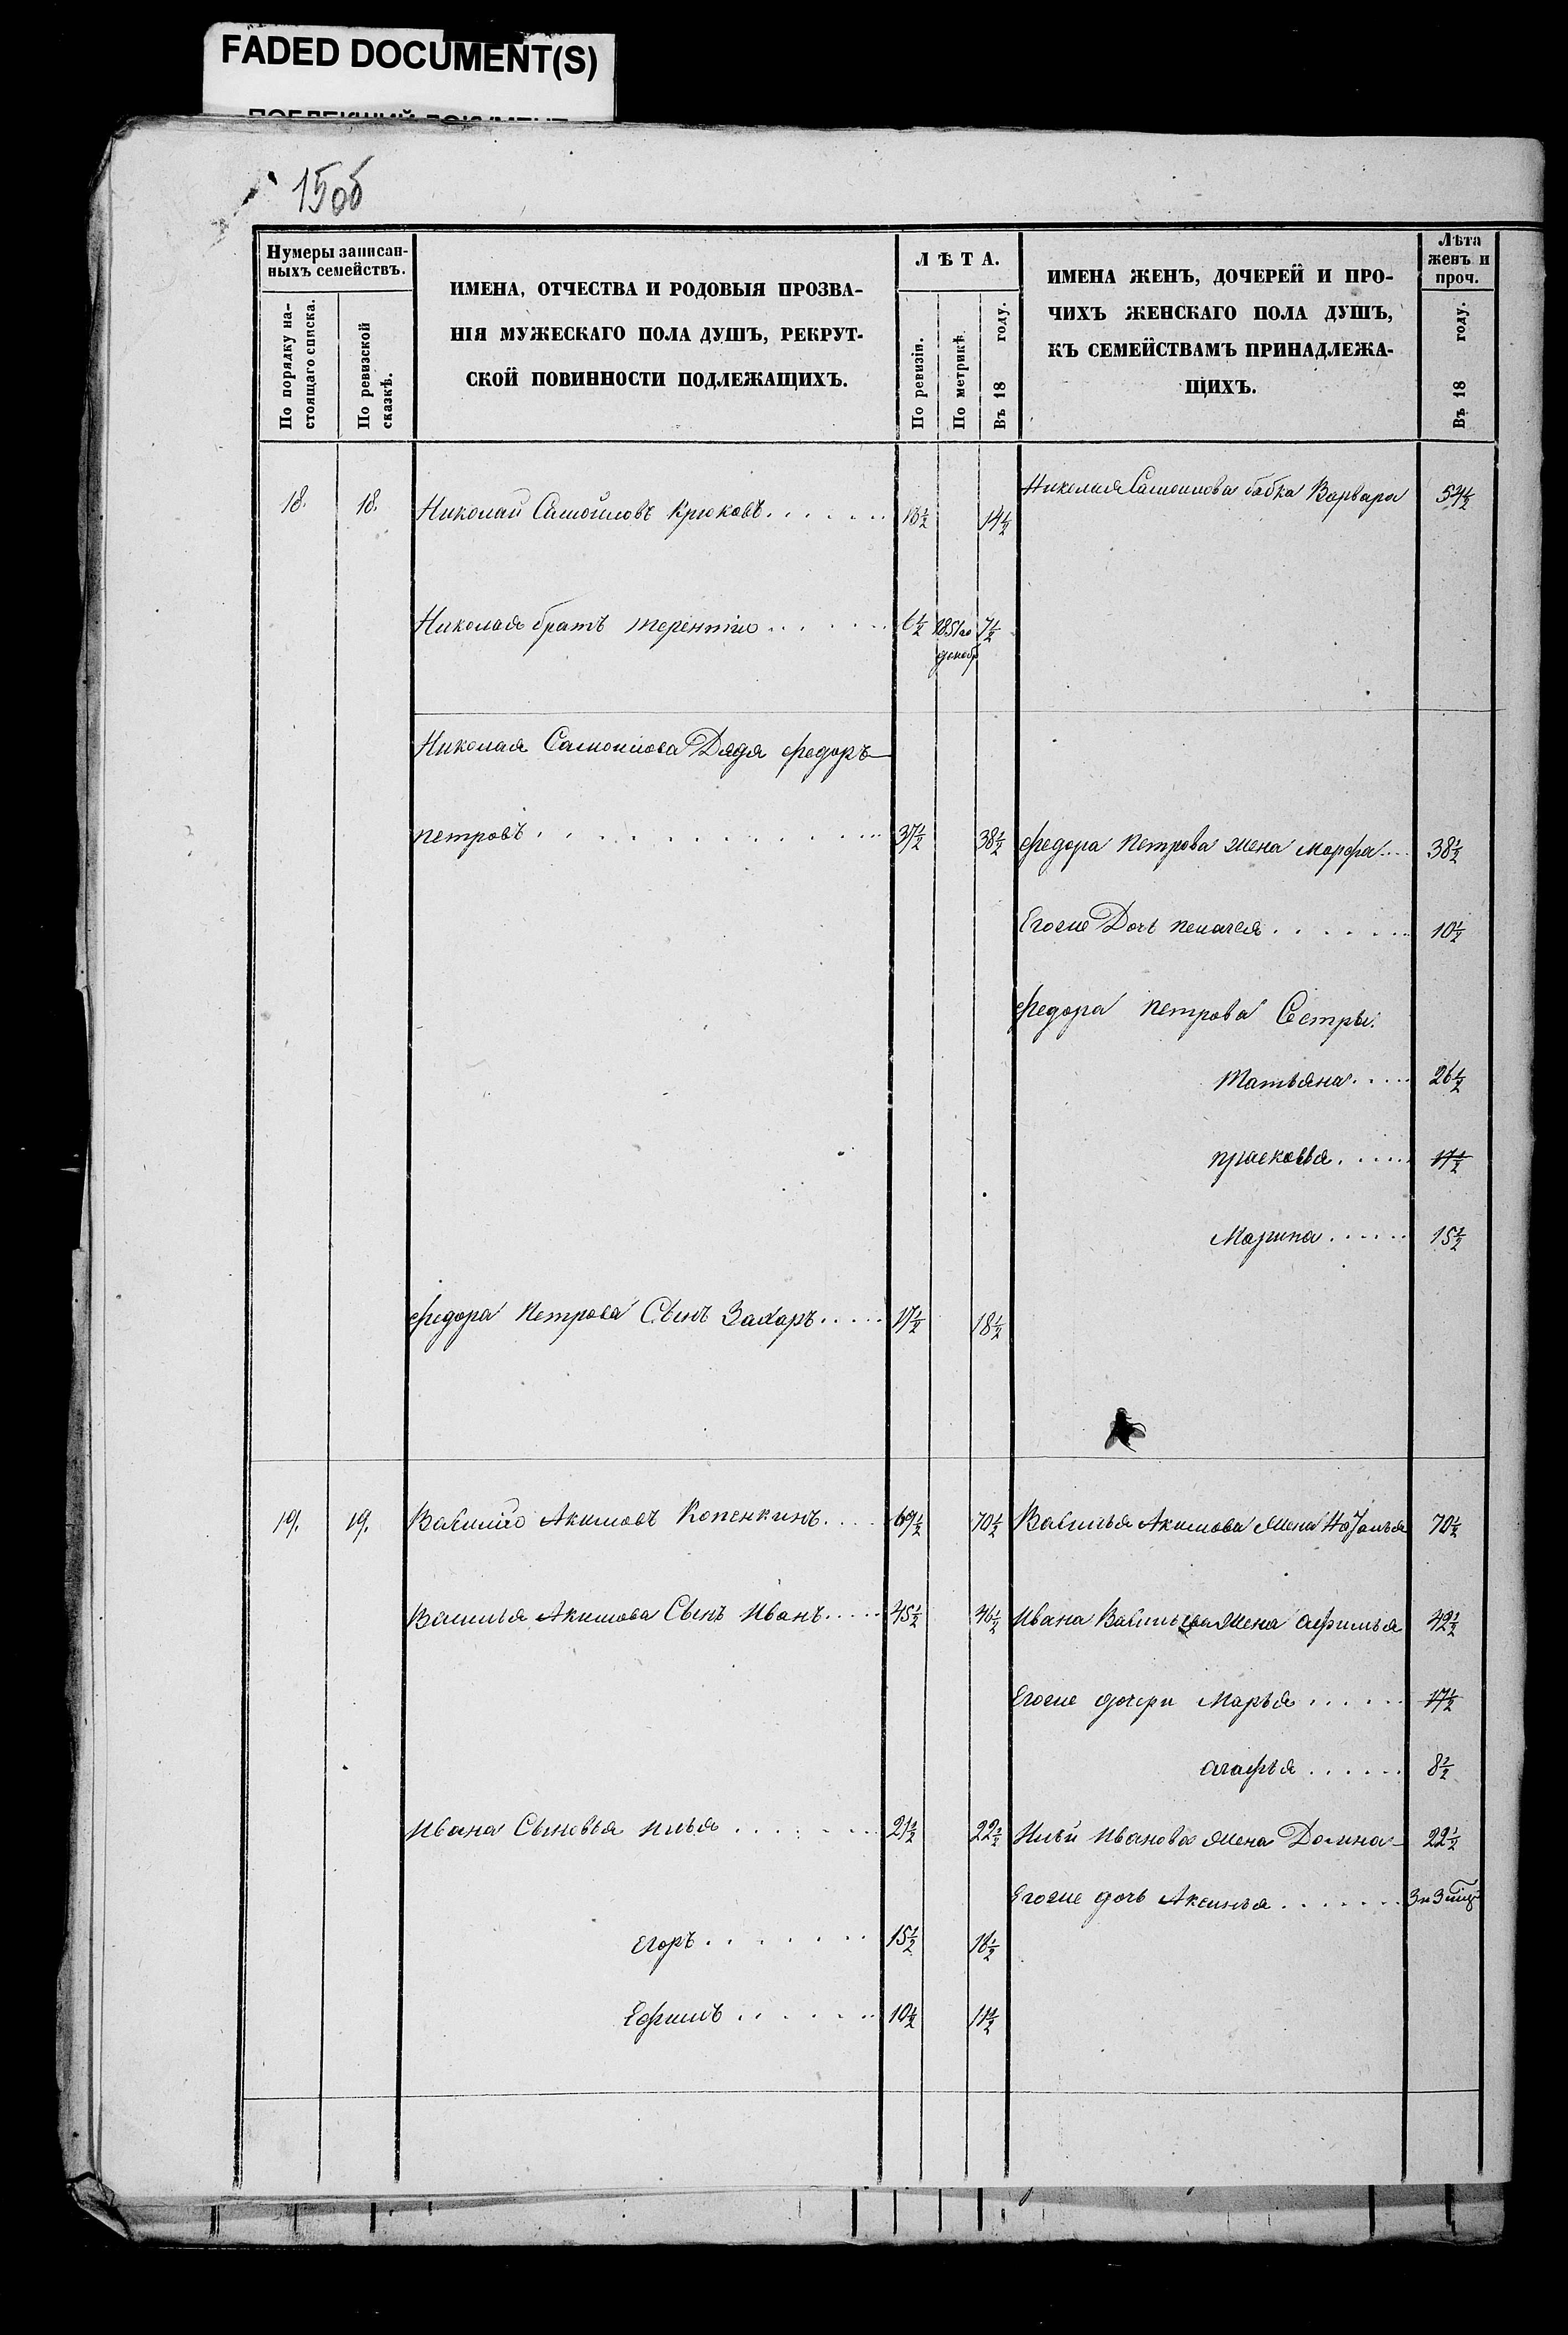 FADED DOCUMENT(S)
15об
Нумеры записан-
ныхъ семействъ.
По порядку на-
стоящаго списка.
По ревизской
сказкѣ.
ИМЕНА, ОТЧЕСТВА И РОДОВЫЯ ПРОЗВА-
НІЯ МУЖЕСКАГО ПОЛА ДУШЪ, РЕКРУТ-
СКОЙ ПОВИННОСТИ ПОДЛЕЖАЩИХЪ.
ЛѢТА.
По ревизіи.
По метрикѣ.
Въ 18 году.
ИМЕНА ЖЕНЪ, ДОЧЕРЕЙ И ПРО-
ЧИХЪ ЖЕНСКАГО ПОЛА ДУШЪ,
КЪ СЕМЕЙСТВАМЪ ПРИНАДЛЕЖА-
ЩИХЪ.
Лѣта
женъ и
проч.
Въ 18 году.
18. 18. Николай Самойловъ Крюковъ 13½ 14½ Николая Самоилова бабка Варвара 54½
Николая братъ терентiй 6½ 1851го 7½
декабр
Николая Самоилова Дядя федоръ
петровъ 37½ 38½ федора Петрова жена марфа 38½
Егоже Дочь пелагея 10½
федора петрова Сестры:
Татьяна 26½
прасковья 17½
Марина 15½
федора Петрова Сынъ Захаръ 17½ 18½
19. 19. Василiй Акимовъ Копенкинъ 69½ 70½ Василья Акимова жена Наталья 70½
Василья Акимова Сынъ Иванъ 45½ 46½ Ивана Васильева жена афимья 42½
Егоже дочери Марья 17½
агафья 8½
Ивана Сыновья илья 21½ 22½ Ильи Иванова жена Домна 22½
Егоже дочь Аксинья
егоръ 15½ 16½
Ефимъ 10½ 11½